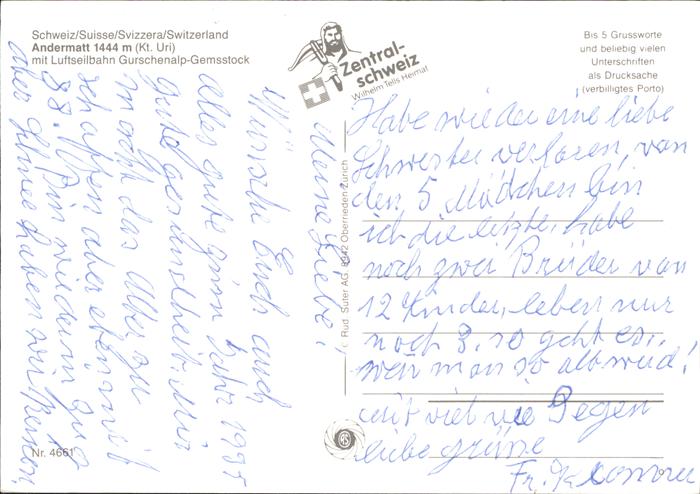 Schweiz/Suisse/Svizzera/Switzerland
Andermatt 1444 m (Kt. Uri)
mit Luftseilbahn Gurschenalp-Gemsstock
Zentral-
schweiz
Wilhelm Tells Heimat
Bis 5 Grussworte
und beliebig vielen
Unterschriften
als Drucksache
(verbilligtes Porto)
Meine Liebe!
Wünsche Euch auch
alles gute zum Jahr 1995
gute gesundheit. Mir
macht das Alter zu
aber
88. Bin wiederum gut
aber haben wir
© Rud. Suter AG, 8942 Oberrieden-Zürich
Habe wieder eine liebe
Schwester verloren, von
den 5 Mädchen bin
ich die letzte, habe
noch zwei Brüder von
12 Kinder, leben nur
noch 3. so geht es,
wen man so alt wird!
mit viel Segen
liebe grüsse
Fr.
Nr. 4661